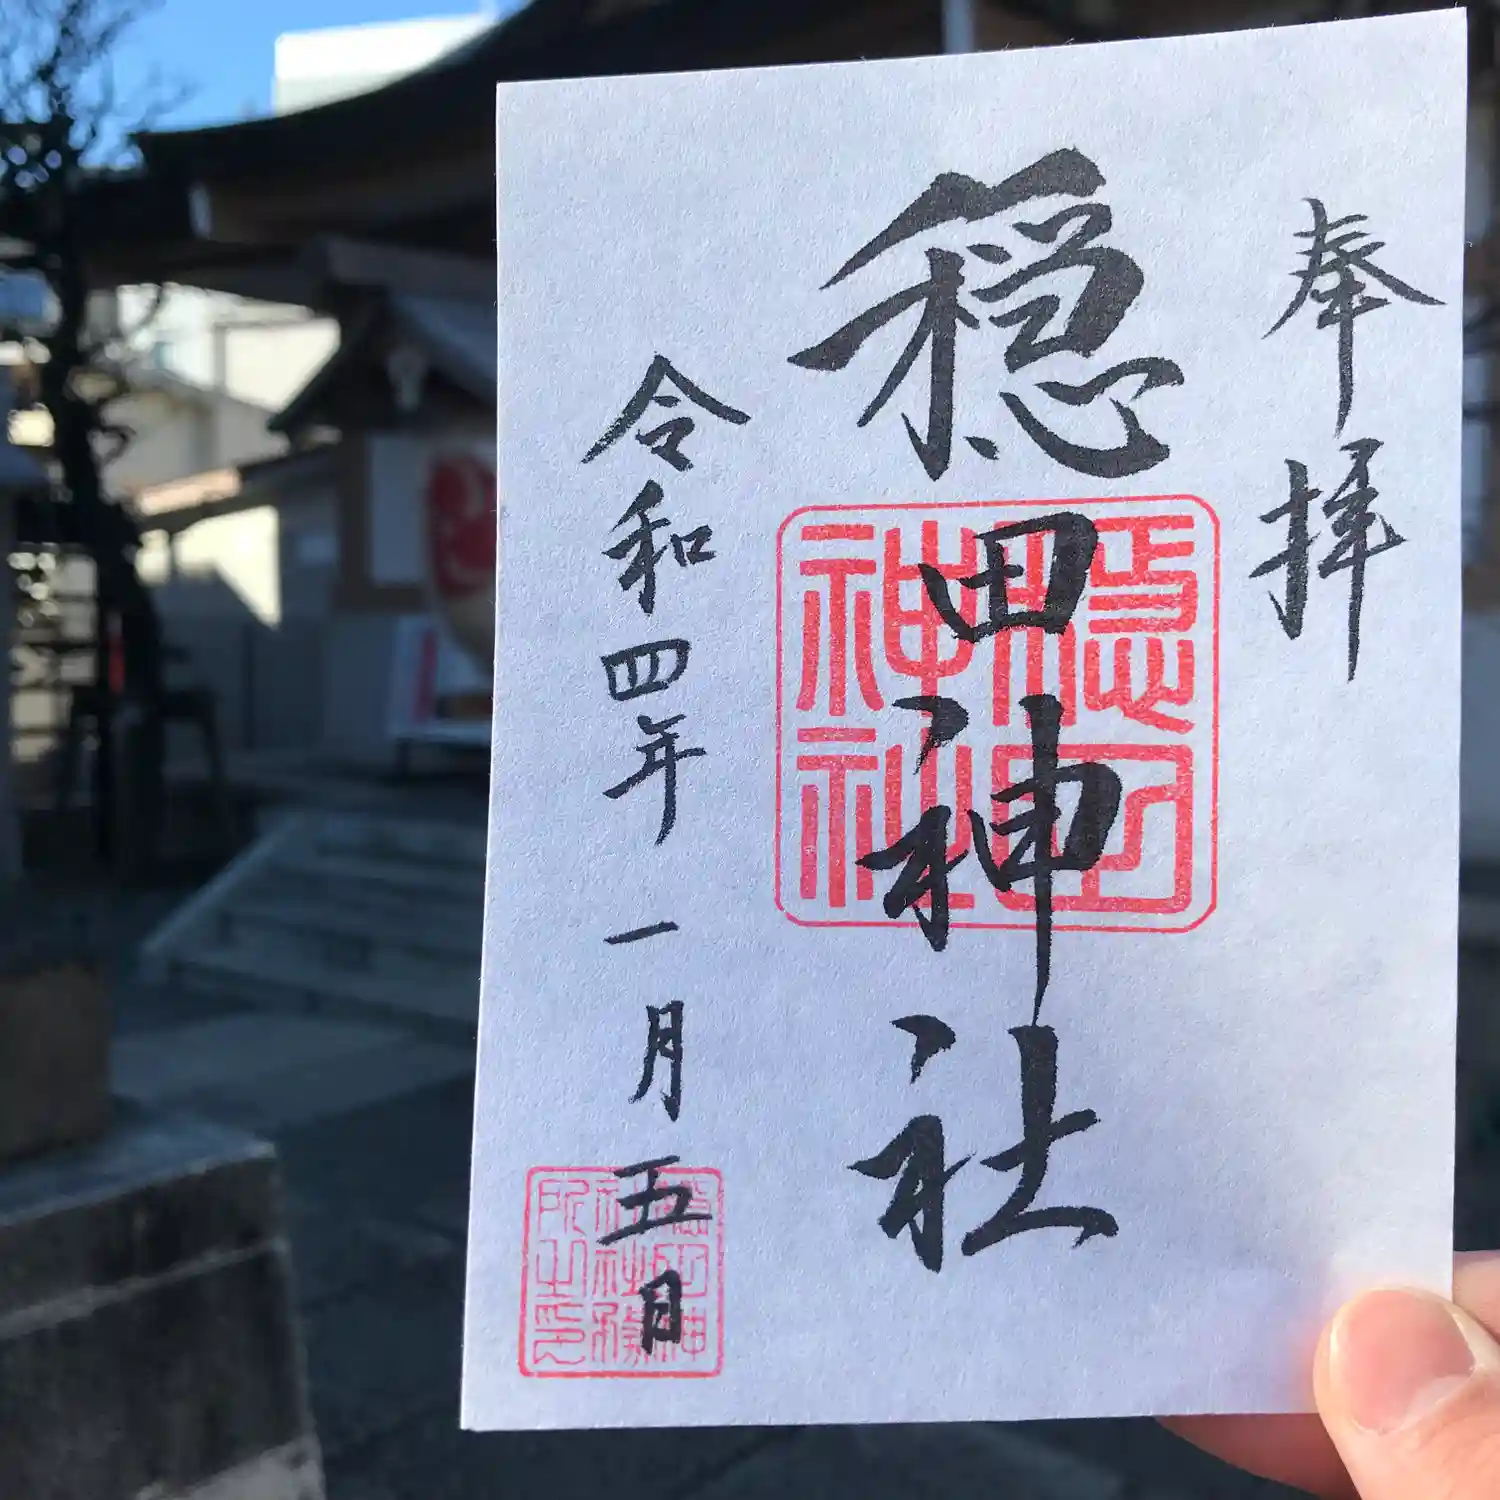 奉拝
穏田神社
穏田神社
令和四年一月五日
穏田神社社務所之印